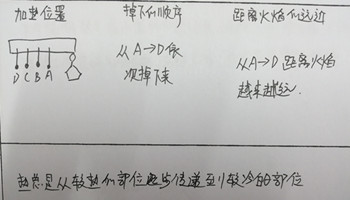 加热位置
掉下的顺序
距离火焰的远近
D C B A
从A→D依
次掉下来
从A→D距离火焰
越来越远.
热总是从较热的部位逐步传递到较冷的部位